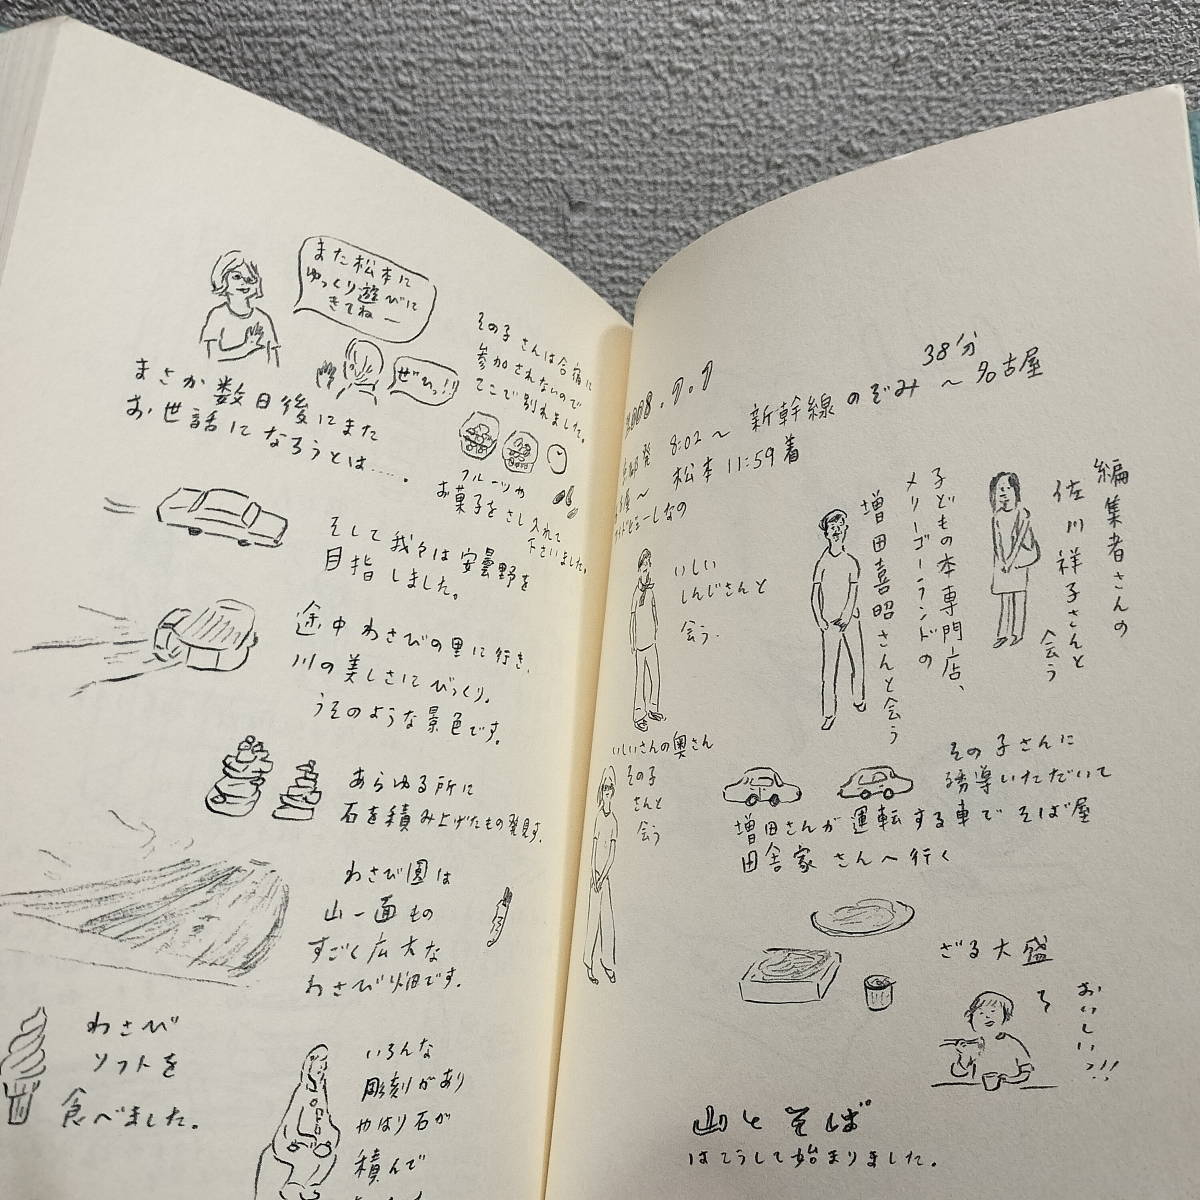 また松本に
ゆっくり遊びに
きてねー
ぜひっ!!
まさか数日後にまた
お世話になろうとは……。
その子さんは合宿に
参加されないので
ここで別れました。
フルーツや
お菓子をさし入れて
下さいました。
そして我々は安曇野を
目指しました。
途中わさびの里に行き、
川の美しさにびっくり。
うそのような景色です。
あらゆる所に
石を積み上げたもの発見す。
わさび園は
山一面もの
すごく広大な
わさび畑です。
わさび
ソフトを
食べました。
いろんな
彫刻があり
やはり石が
積んで
2008.7.7
8:02〜 新幹線のぞみ 〜 38分 名古屋
松本 11:59着
編集者さんの
佐川祥子さんと
会う
子どもの本専門店、
メリーゴーランドの
増田喜昭さんと会う
いしい
しんじさんと
会う.
いしいさんの奥さん
その子
さんと
会う
その子さんに
誘導いただいて
増田さんが運転する車でそば屋
田舎家さんへ行く
ざる大盛
おいしいっ!!
山とそば
はこうして始まりました。